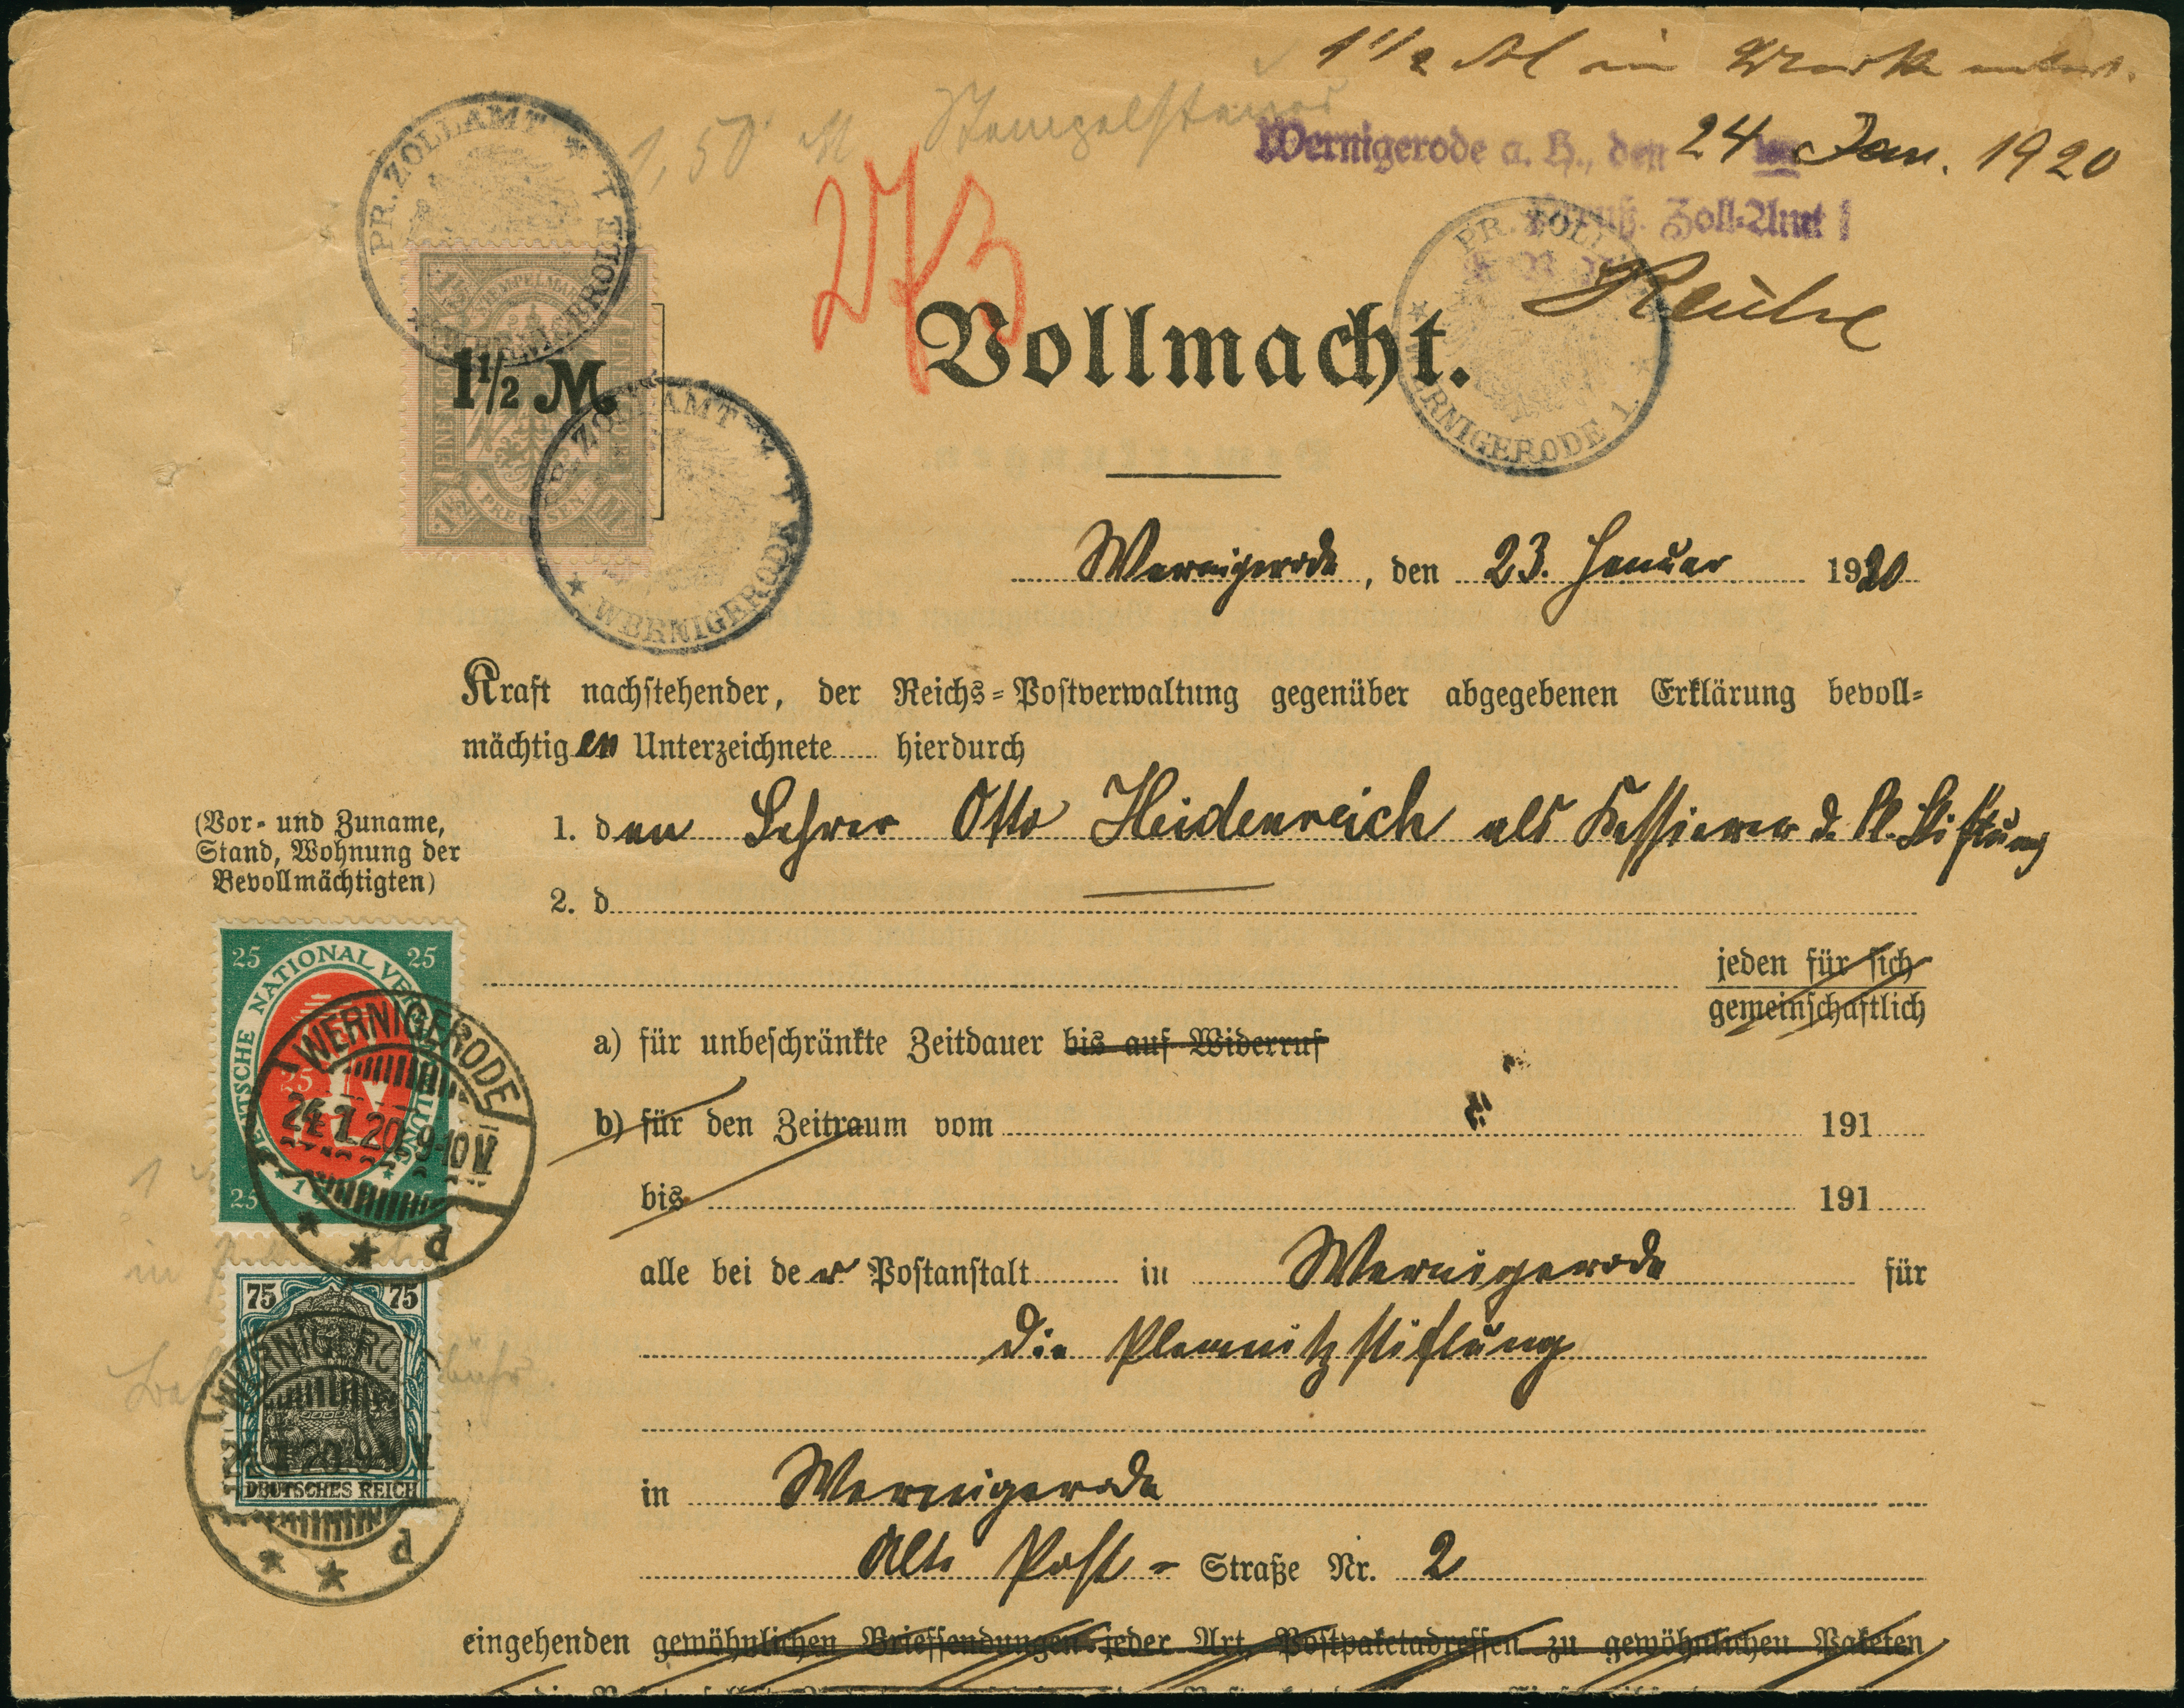 1 1/2 M in Marke entw.
1,50 M Stempelsteuer
Wernigerode a. H., den 24 Jan. 1920
Preuß. Zoll-Amt I
Reuhe
273
PR. ZOLLAMT * I
* WERNIGERODE
STEMPELMARKE
1 1/2 M.
PREUSSEN
PR. ZOLLAMT * I
* WERNIGERODE
PR. ZOLL
* WERNIGERODE 1. *
Vollmacht.
Wernigerode, den 23. Januar 1920
Kraft nachstehender, der Reichs-Postverwaltung gegenüber abgegebenen Erklärung bevoll-
mächtigen Unterzeichnete hierdurch
(Vor- und Zuname,
Stand, Wohnung der
Bevollmächtigten)
1. den Lehrer Otto Heidenreich als Kassierer d. Pl. Stiftung
2. d
jeden für sich
gemeinschaftlich
a) für unbeschränkte Zeitdauer bis auf Widerruf
b) für den Zeitraum vom 191
bis 191
alle bei der Postanstalt in Wernigerode für
die Plemnitzstiftung
in Wernigerode
Alte Post-Straße Nr. 2
eingehenden gewöhnlichen Briefsendungen jeder Art, Postpaketadressen zu gewöhnlichen Paketen
25 25
DEUTSCHE NATIONAL VERSAMMLUNG
25
WERNIGERODE
24.1.20 9-10 V
* * P
75 75
DEUTSCHES REICH
WERNIGERODE
24.1.20 9-10 V
* * P